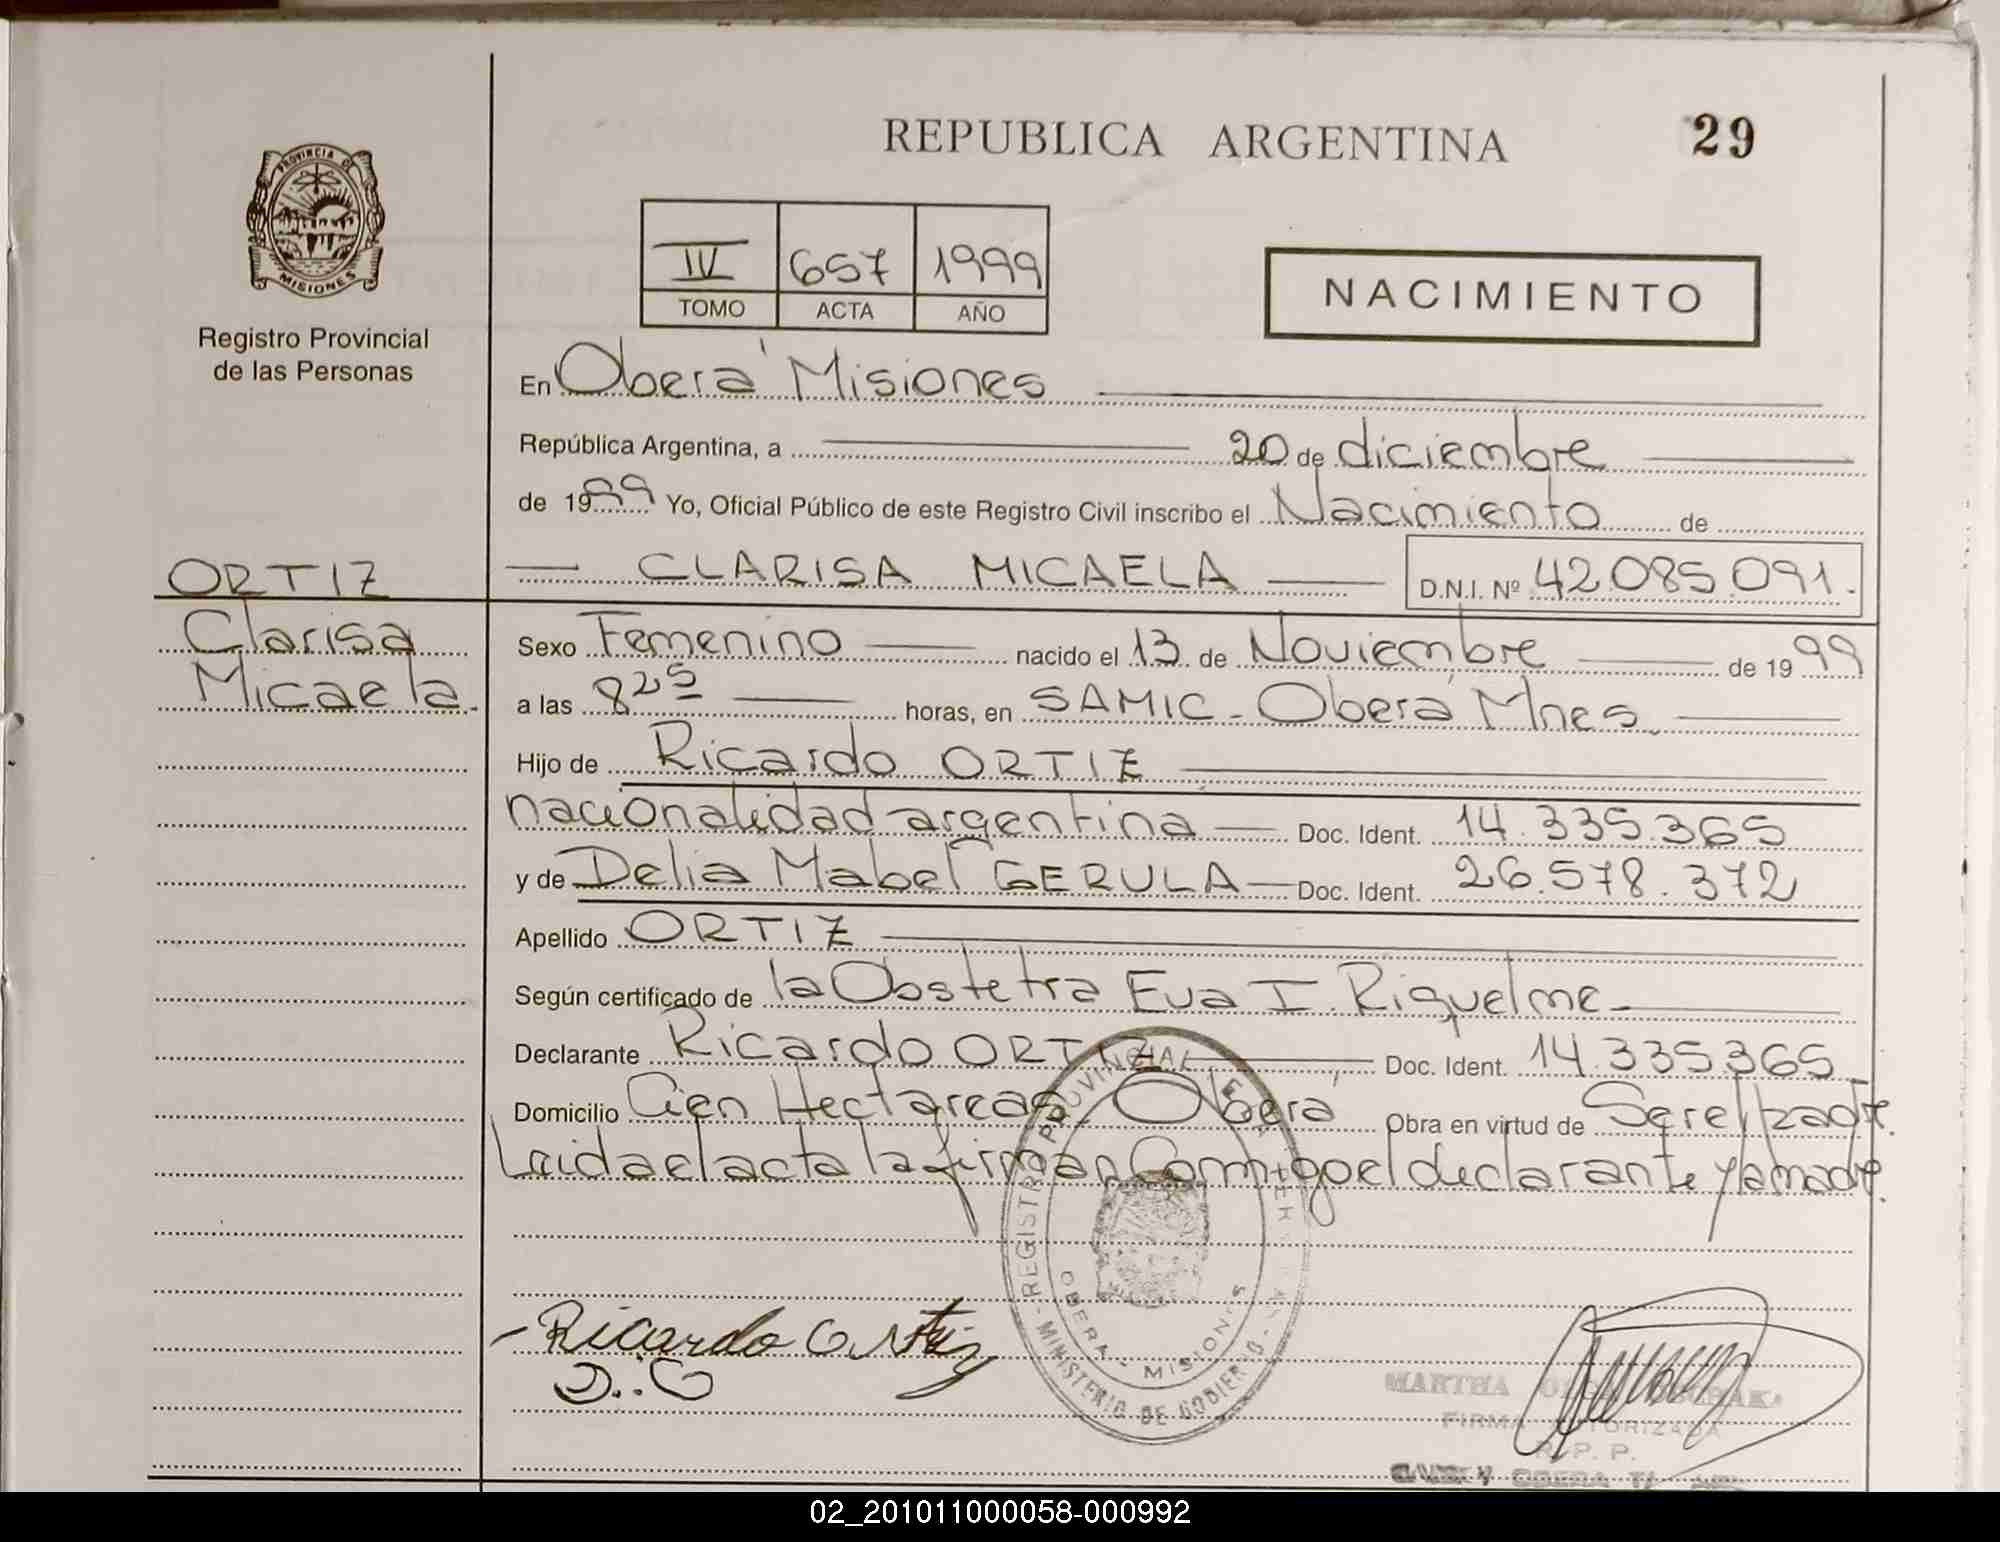 REPUBLICA ARGENTINA 29
PROVINCIA DE
MISIONES
Registro Provincial
de las Personas
IV 657 1999
TOMO ACTA AÑO
NACIMIENTO
En Oberá Misiones
República Argentina, a 20 de diciembre
de 1999 Yo, Oficial Público de este Registro Civil inscribo el Nacimiento de
CLARISA MICAELA D.N.I. Nº 42.085.091.
ORTIZ
Clarisa
Micaela.
Sexo Femenino nacido el 13 de Noviembre de 1999
a las 8 25 horas, en SAMIC - Oberá Mnes.
Hijo de Ricardo ORTIZ
nacionalidad argentina Doc. Ident. 14.335.365
y de Delia Mabel GERULA Doc. Ident. 26.578.372
Apellido ORTIZ
Según certificado de la Obstetra Eva I. Riquelme
Declarante Ricardo ORTIZ Doc. Ident. 14.335.365
Domicilio Cien Hectareas, Oberá Obra en virtud de Ser el padre.
Leida el acta la firman Conmigo el declarante y la madre.
REGISTRO PROVINCIAL DE
OBERA - MISIONES
MINISTERIO DE GOBIERNO
Ricardo Ortiz
D. G
MARTHA
FIRMA AUTORIZADA
R. P. P.
02_201011000058-000992